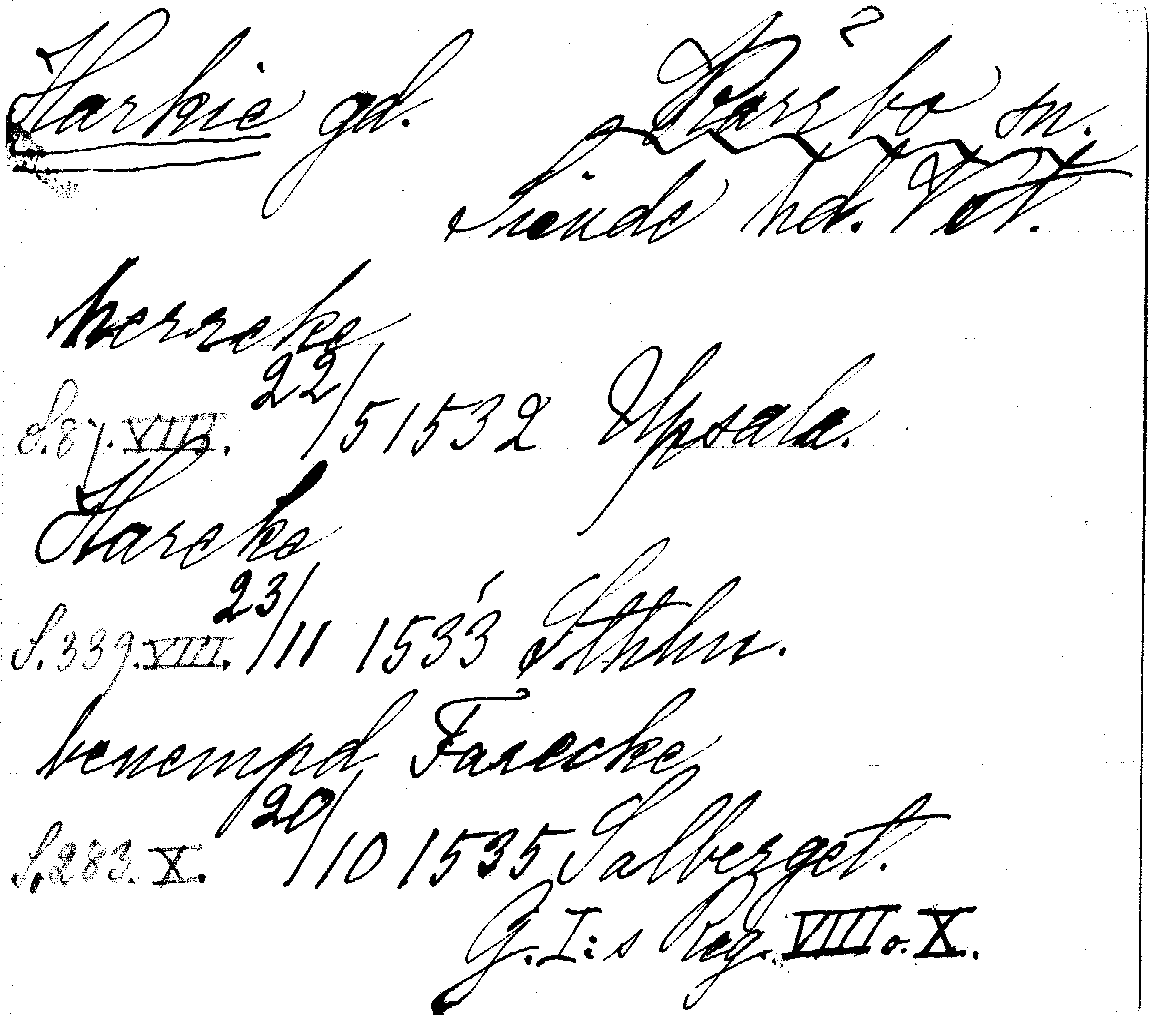 Harkie gd. ? Skerrbo sn.
Siende hd. Vstm.
herreke
S. 87. VIII. 22/5 1532 Upsala.
Hareke
S. 339. VIII. 23/11 1533 Sthlm.
benempd Farecke
S. 283. X. 20/10 1535 Salberget.
G. I:s Reg. VIII o. X.